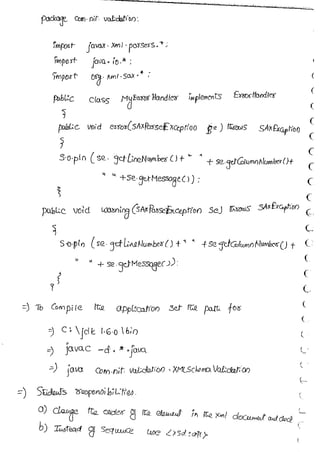 package com.nit.validation;
import javax.xml.parsers.*;
import java.io.*;
import org.xml.sax.*;
public class MyErrorHandler implements ErrorHandler
{
public void error(SAXParseException se) throws SAXException
{
S.o.pln (se.getLineNumber()+" " + se.getColumnNumber()+
" " +se.getMessage());
}
public void warning(SAXParseException se) throws SAXException
{
S.o.pln (se.getLineNumber()+" " + se.getColumnNumber() +
" " + se.getMessage());
}
}
=) To Compile the application set the path for
=) C:\jdk 1.6.0\bin
=) javac -d . *.java
=) java com.nit.validation.XMLSchemaValidation
=) Students responsibilities.
a) change the order of the element in the xml document and check
b) Instead of sequence use <xsd:all>